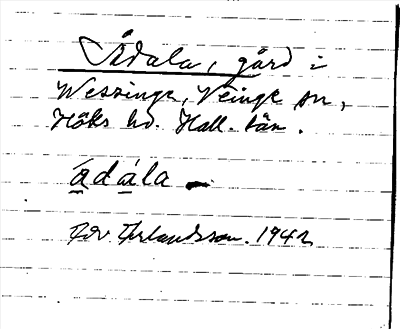 Ådala, gård i
Wessinge, Veinge sn,
Höks hd. Hall. län.
ådála –
Erlandsson. 1942